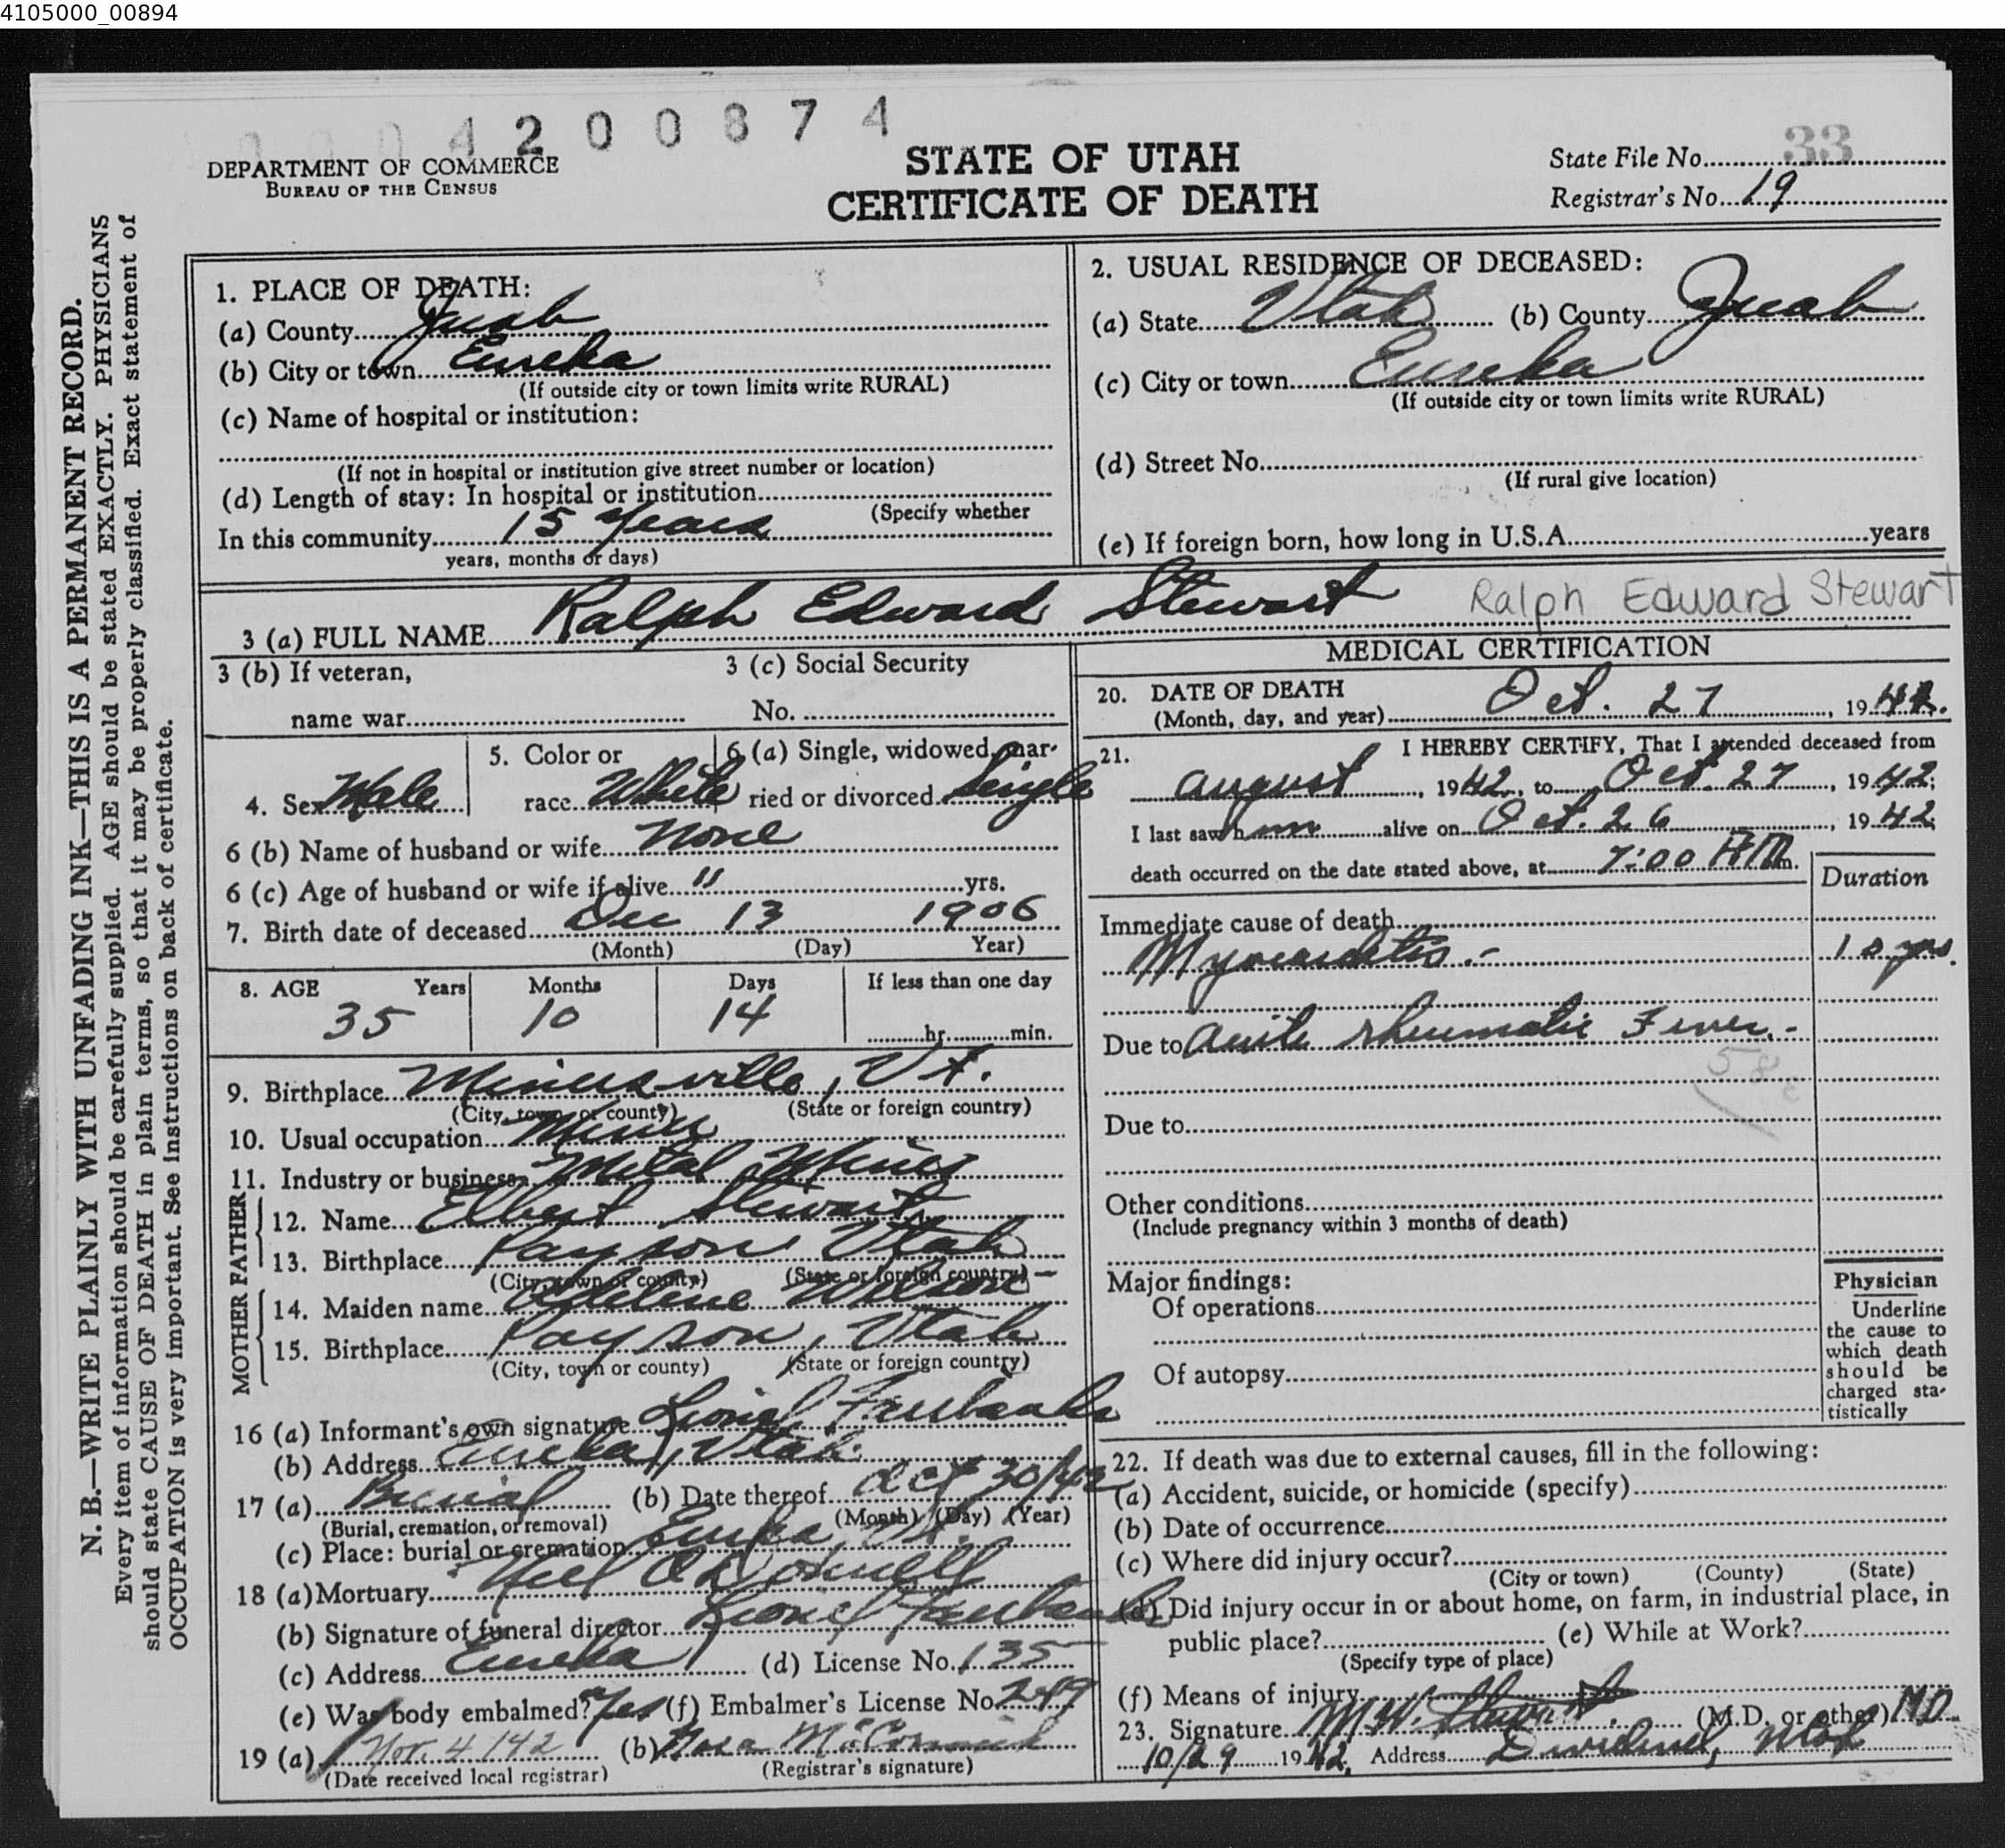 4105000_00894
0004200874
DEPARTMENT OF COMMERCE
BUREAU OF THE CENSUS
STATE OF UTAH
CERTIFICATE OF DEATH
State File No. 33
Registrar's No. 19
N. B.—WRITE PLAINLY WITH UNFADING INK—THIS IS A PERMANENT RECORD.
Every item of information should be carefully supplied. AGE should be stated EXACTLY. PHYSICIANS
should state CAUSE OF DEATH in plain terms, so that it may be properly classified. Exact statement of
OCCUPATION is very important. See instructions on back of certificate.
1. PLACE OF DEATH:
(a) County Juab
(b) City or town Eureka
(If outside city or town limits write RURAL)
(c) Name of hospital or institution:
(If not in hospital or institution give street number or location)
(d) Length of stay: In hospital or institution
(Specify whether
In this community 15 years
years, months or days)
2. USUAL RESIDENCE OF DECEASED:
(a) State Utah (b) County Juab
(c) City or town Eureka
(If outside city or town limits write RURAL)
(d) Street No.
(If rural give location)
(e) If foreign born, how long in U.S.A. years
3 (a) FULL NAME Ralph Edward Stewart Ralph Edward Stewart
3 (b) If veteran,
name war
3 (c) Social Security
No.
4. Sex Male
5. Color or
race White
6 (a) Single, widowed, mar-
ried or divorced Single
6 (b) Name of husband or wife None
6 (c) Age of husband or wife if alive " yrs.
7. Birth date of deceased Dec 13 1906
(Month) (Day) Year)
8. AGE Years Months Days If less than one day
35 10 14 hr. min.
9. Birthplace Minersville, Ut.
(City, town, or county) (State or foreign country)
10. Usual occupation Miner
11. Industry or business Metal Mines
FATHER
12. Name Elbert Stewart
13. Birthplace Payson Utah
(City, town or county) (State or foreign country)
MOTHER
14. Maiden name Adeline Wilson
15. Birthplace Payson, Utah
(City, town or county) (State or foreign country)
16 (a) Informant's own signature Lionel Fairbanks
(b) Address Eureka, Utah.
17 (a) Burial (b) Date thereof Oct 30/42
(Burial, cremation, or removal) (Month) (Day) (Year)
(c) Place: burial or cremation Eureka, Ut.
18 (a) Mortuary O'Donnell
(b) Signature of funeral director Lionel Fairbanks
(c) Address Eureka (d) License No. 135
(e) Was body embalmed? Yes (f) Embalmer's License No. 249
19 (a) Nov. 4 1942 (b) McCormick
(Date received local registrar) (Registrar's signature)
MEDICAL CERTIFICATION
20. DATE OF DEATH
(Month, day, and year) Oct. 27, 1942.
21. I HEREBY CERTIFY, That I attended deceased from
August, 1942, to Oct. 27, 1942;
I last saw him alive on Oct. 26, 1942;
death occurred on the date stated above, at 7:00 AM m.
Duration
Immediate cause of death
Myocarditis.- 10 yrs.
Due to Acute rheumatic Fever.-
58c
Due to
Other conditions
(Include pregnancy within 3 months of death)
Major findings:
Of operations
Of autopsy
Physician
Underline
the cause to
which death
should be
charged sta-
tistically
22. If death was due to external causes, fill in the following:
(a) Accident, suicide, or homicide (specify)
(b) Date of occurrence
(c) Where did injury occur?
(City or town) (County) (State)
(d) Did injury occur in or about home, on farm, in industrial place, in
public place? (e) While at Work?
(Specify type of place)
(f) Means of injury
23. Signature (M.D. or other) MD.
10/29 1942. Address Dividend, Utah